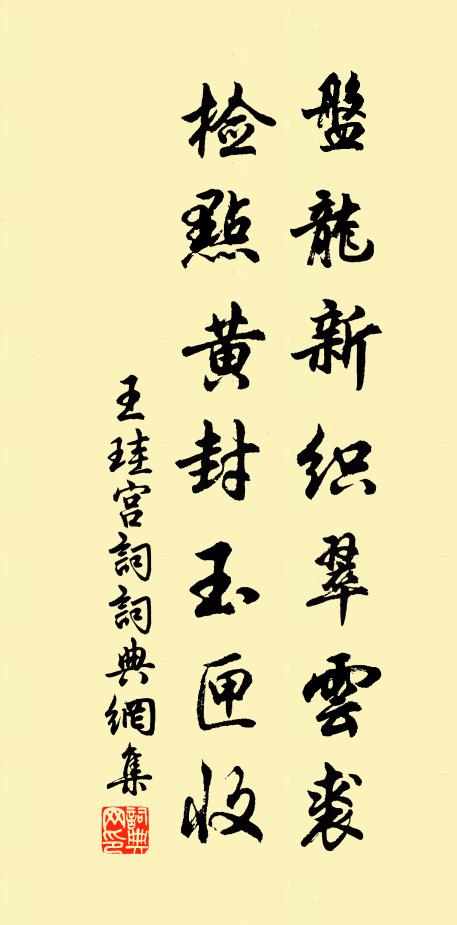 盤龍新织翠雲裘
檢點黄封玉匣收
王珪宫詞詞典網集
詞典网印